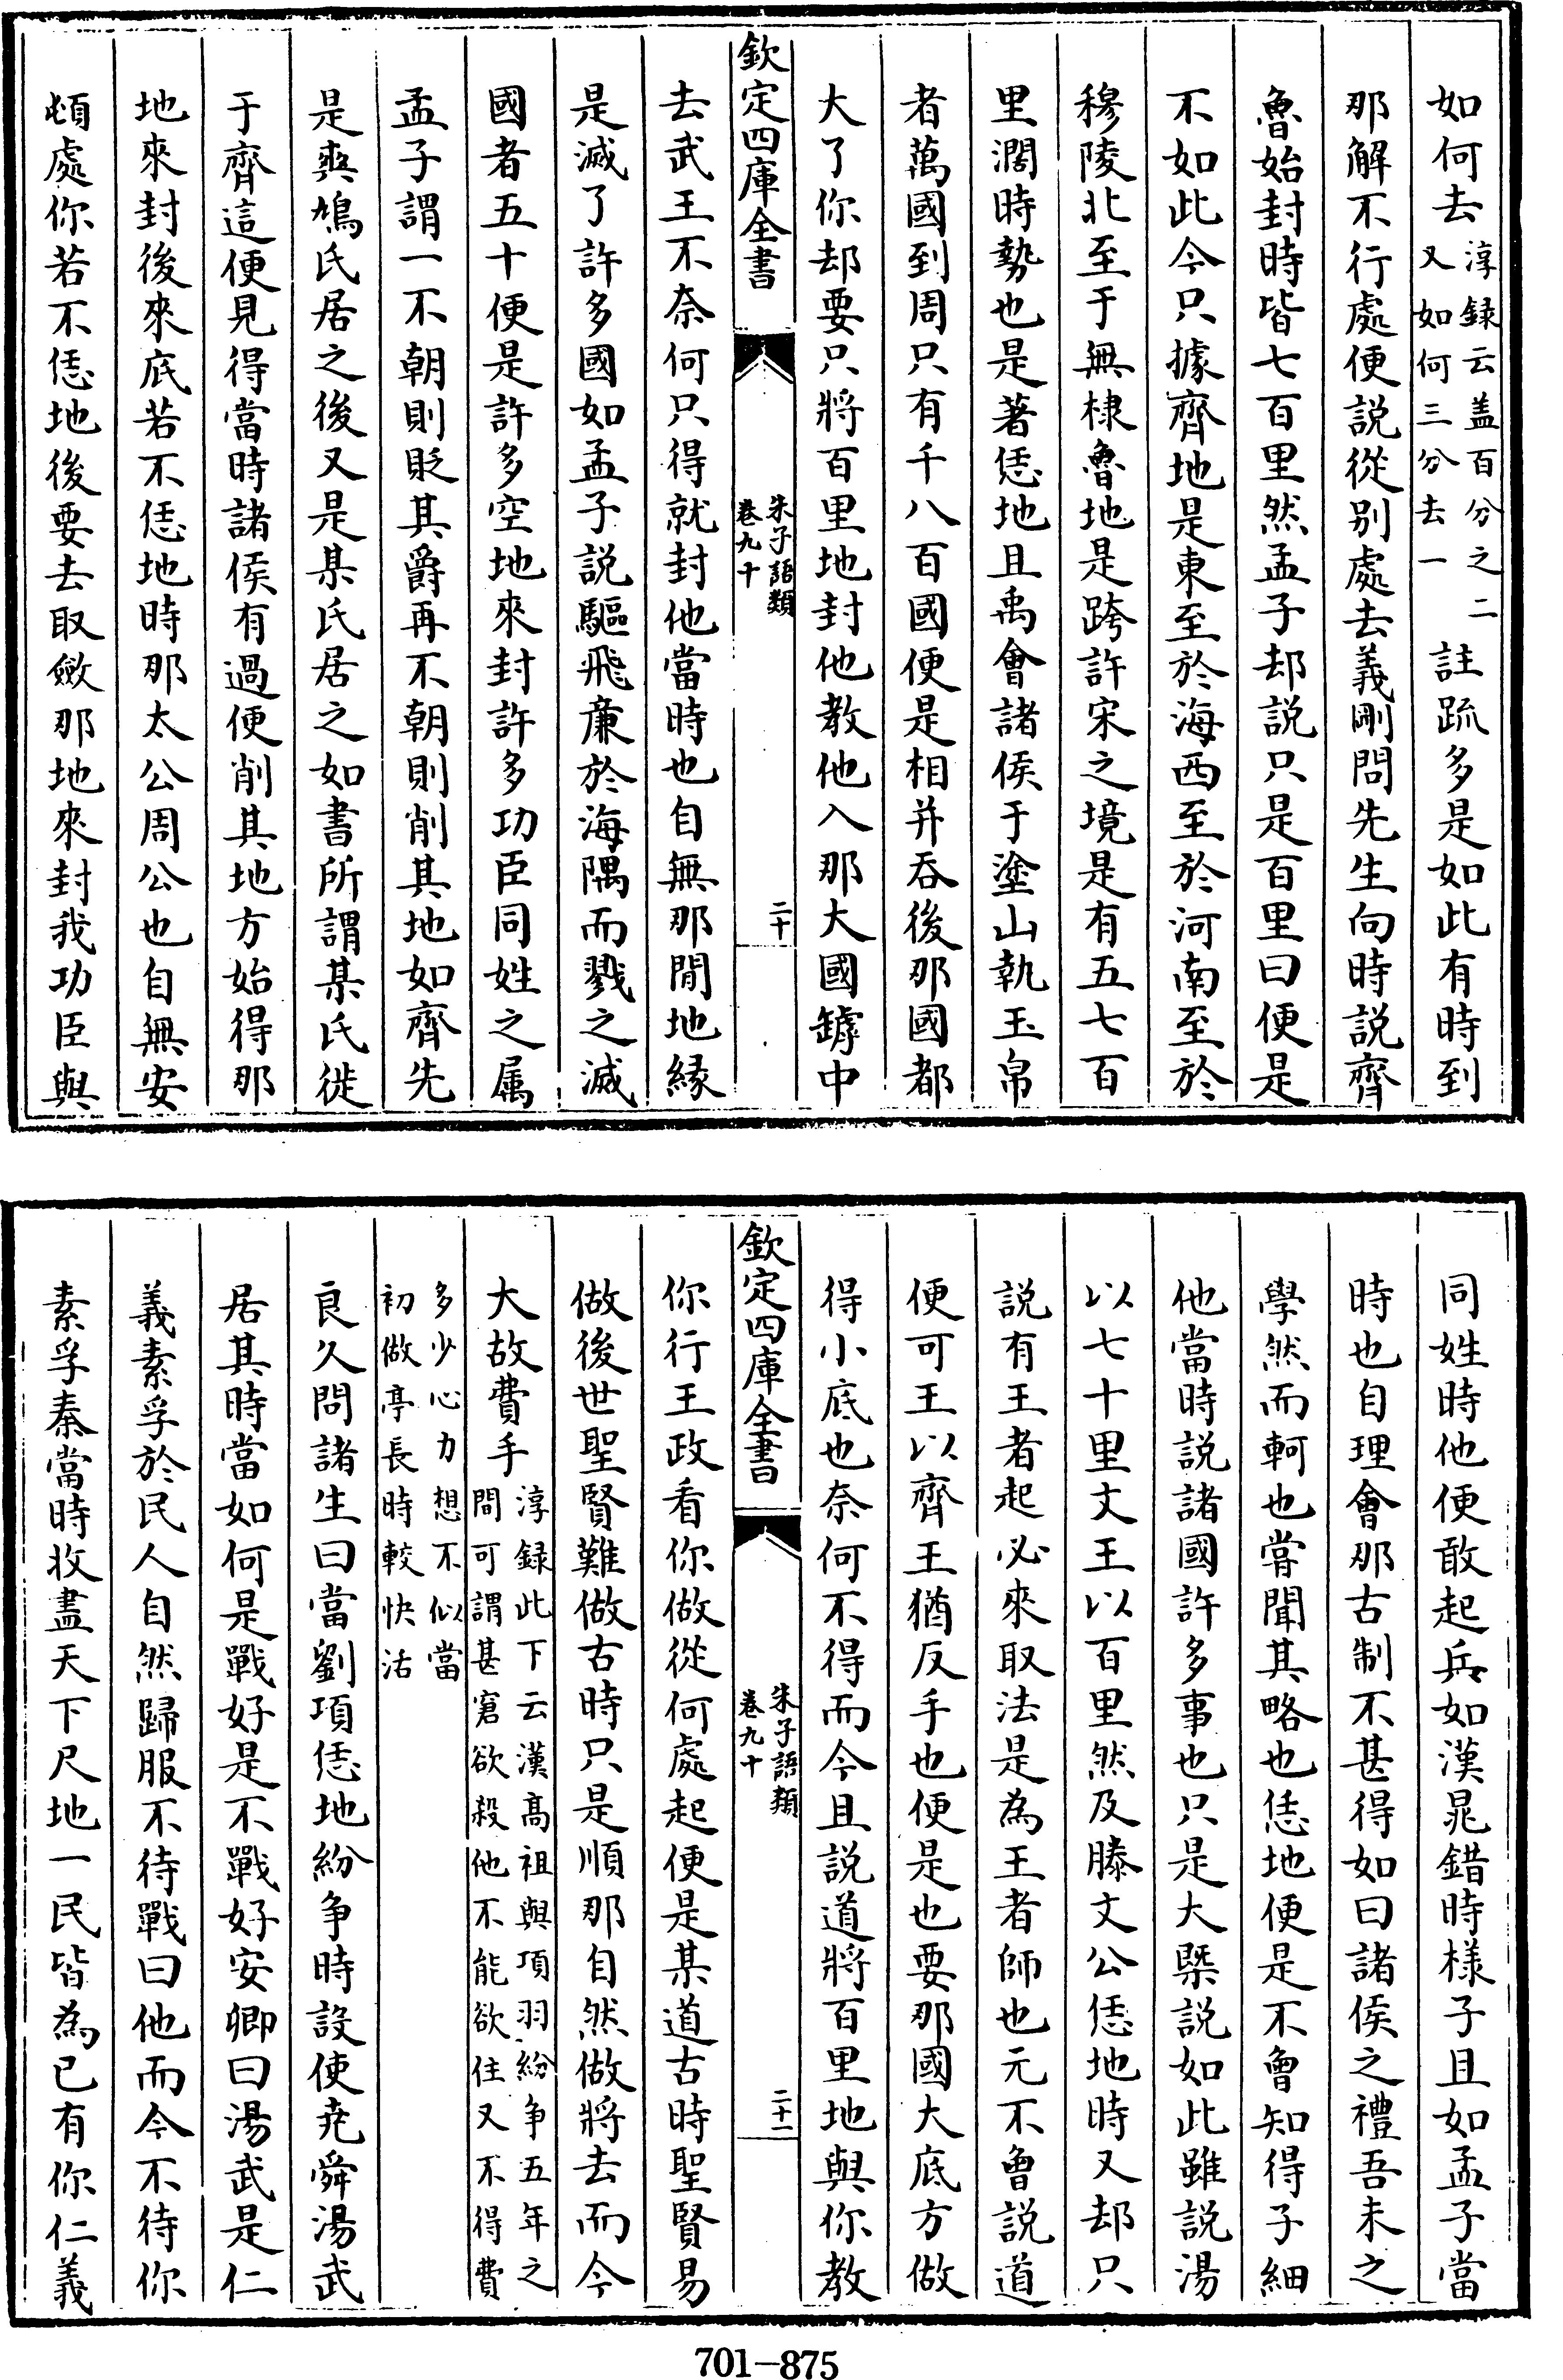 如何去淳録云盖百分之二又如何三分去一註疏多是如此有時到
那解不行處便說從别處去義剛問先生向時說齊
魯始封時皆七百里然孟子却說只是百里曰便是
不如此今只據齊地是東至於海西至於河南至於
穆陵北至于無棣魯地是跨許宋之境是有五七百
里濶時勢也是著恁地且禹會諸侯于塗山執玉帛
者萬國到周只有千八百國便是相并吞後那國都
大了你却要只將百里地封他教他入那大國罅中
欽定四庫全書
朱子語類
卷九十
二十
去武王不奈何只得就封他當時也自無那閒地縁
是滅了許多國如孟子說驅飛亷於海隅而戮之滅
國者五十便是許多空地來封許多功臣同姓之属
孟子謂一不朝則貶其爵再不朝則削其地如齊先
是爽鳩氏居之後又是某氏居之如書所謂某氏徙
于齊這便見得當時諸侯有過便削其地方始得那
地來封後來底若不恁地時那太公周公也自無安
頓處你若不恁地後要去取斂那地來封我功臣與
同姓時他便敢起兵如漢晁錯時様子且如孟子當
時也自理會那古制不甚得如曰諸侯之禮吾未之
學然而軻也嘗聞其略也恁地便是不曾知得子細
他當時說諸國許多事也只是大槩說如此雖說湯
以七十里文王以百里然及滕文公恁地時又却只
說有王者起必來取法是為王者師也元不曾說道
便可王以齊王猶反手也便是也要那國大底方做
得小底也奈何不得而今且說道將百里地與你教
欽定四庫全書
朱子語類
卷九十
二十一
你行王政看你做從何處起便是某道古時聖賢易
做後世聖賢難做古時只是順那自然做將去而今
大故費手淳録此下云漢髙祖與項羽紛争五年之間可謂甚窘欲殺他不能欲住又不得費
多少心力想不似當初做亭長時較快活
良久問諸生曰當劉項恁地紛争時設使堯舜湯武
居其時當如何是戰好是不戰好安卿曰湯武是仁
義素孚於民人自然歸服不待戰曰他而今不待你
素孚秦當時收盡天下尺地一民皆為已有你仁義
701—875